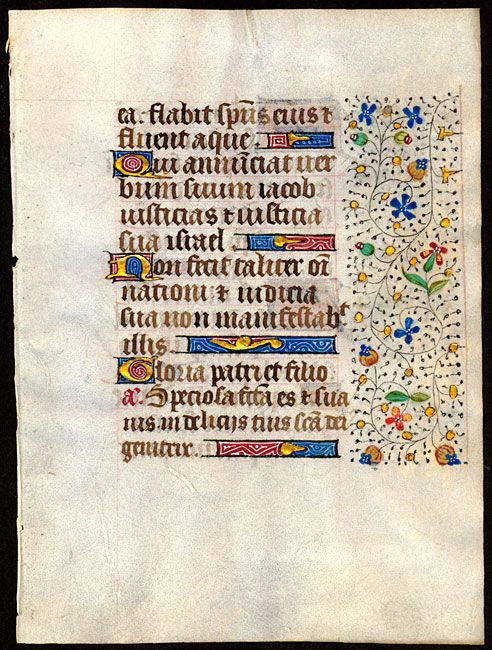 ea. flabit sp̄us eius ⁊
fluent aque.
Qui annunciat ver
bum suum iacob
iusticias ⁊ iusticia
sua israel.
Non fecit taliter oī
nationi: ⁊ iudicia
sua non manifestabᵗ
illis.
Gloria patri et filio
a. Speciosa fc̄a es ⁊ sua
uis. in delicijs tuis sc̄a dei
genitrix.